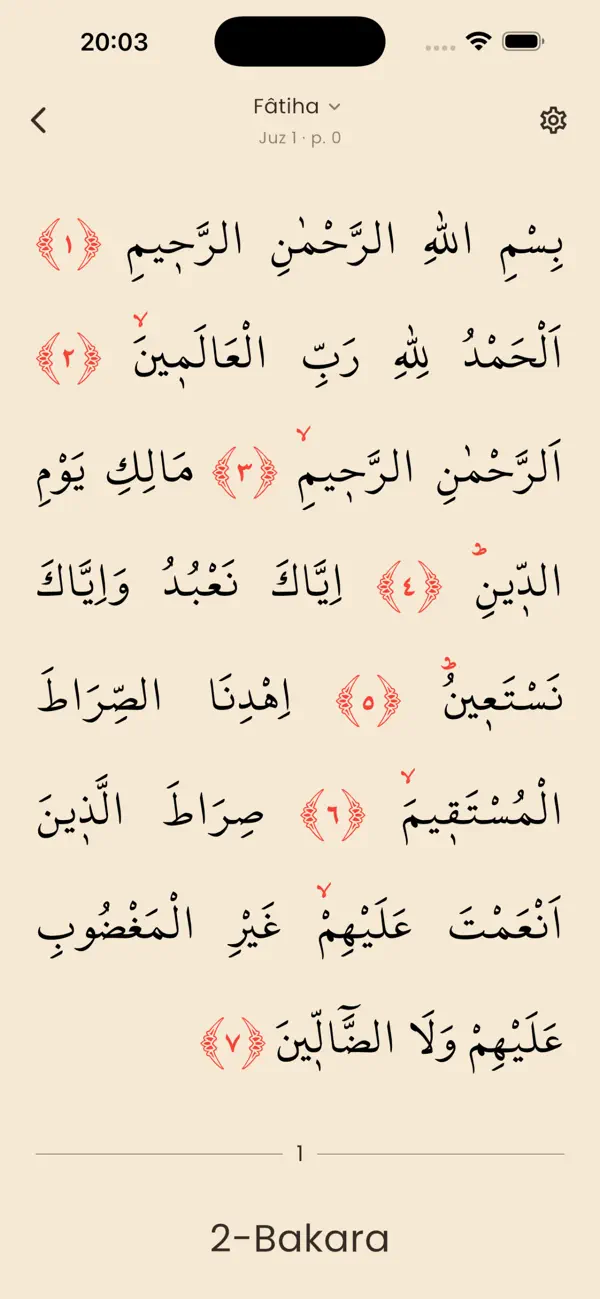 20:03
Fâtiha
Juz 1 · p. 0
بِسْمِ اللّٰهِ الرَّحْمٰنِ الرَّح۪يمِ ﴿١﴾
اَلْحَمْدُ لِلّٰهِ رَبِّ الْعَالَم۪ينَۙ ﴿٢﴾
اَلرَّحْمٰنِ الرَّح۪يمِۙ ﴿٣﴾ مَالِكِ يَوْمِ
الدّ۪ينِۜ ﴿٤﴾ اِيَّاكَ نَعْبُدُ وَاِيَّاكَ
نَسْتَع۪ينُۜ ﴿٥﴾ اِهْدِنَا الصِّرَاطَ
الْمُسْتَق۪يمَۙ ﴿٦﴾ صِرَاطَ الَّذ۪ينَ
اَنْعَمْتَ عَلَيْهِمْۙ غَيْرِ الْمَغْضُوبِ
عَلَيْهِمْ وَلَا الضَّٓالّ۪ينَ ﴿٧﴾
1
2-Bakara